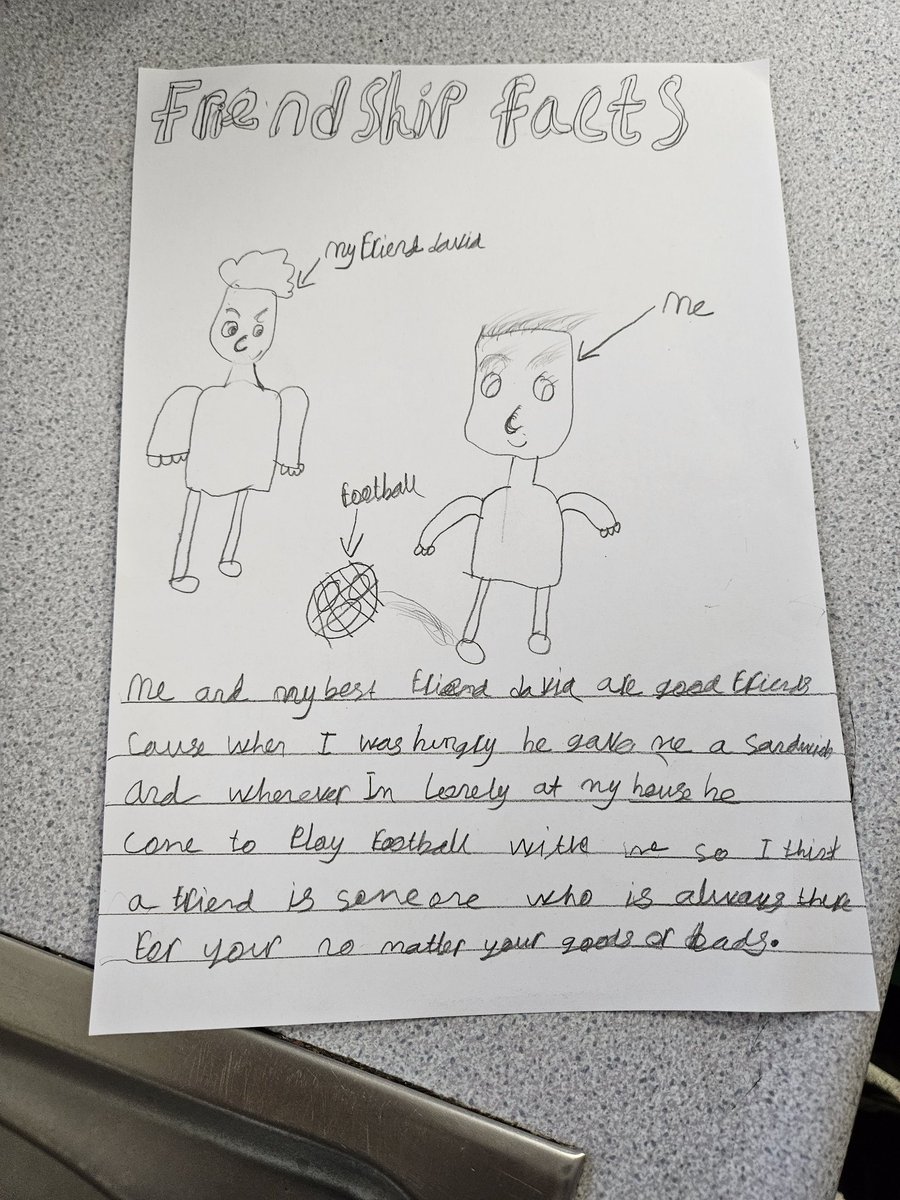 Friendship facts
my friend david
me
football
me and my best friend david are good friends
cause when I was hungry he gave me a sandwich
and whenever Im lonely at my house he
come to play football with me so I think
a friend is someone who is always there
for your no matter your goods or bads.